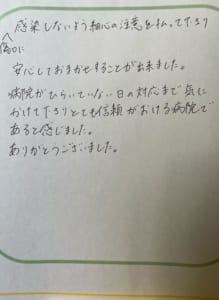 傷口に
感染しないよう細心の注意を払って下さり
安心しておまかせすることが出来ました。
病院がひらいていない日の対応まで気に
かけて下さりとても信頼がおける病院で
あると感じました。
ありがとうございました。